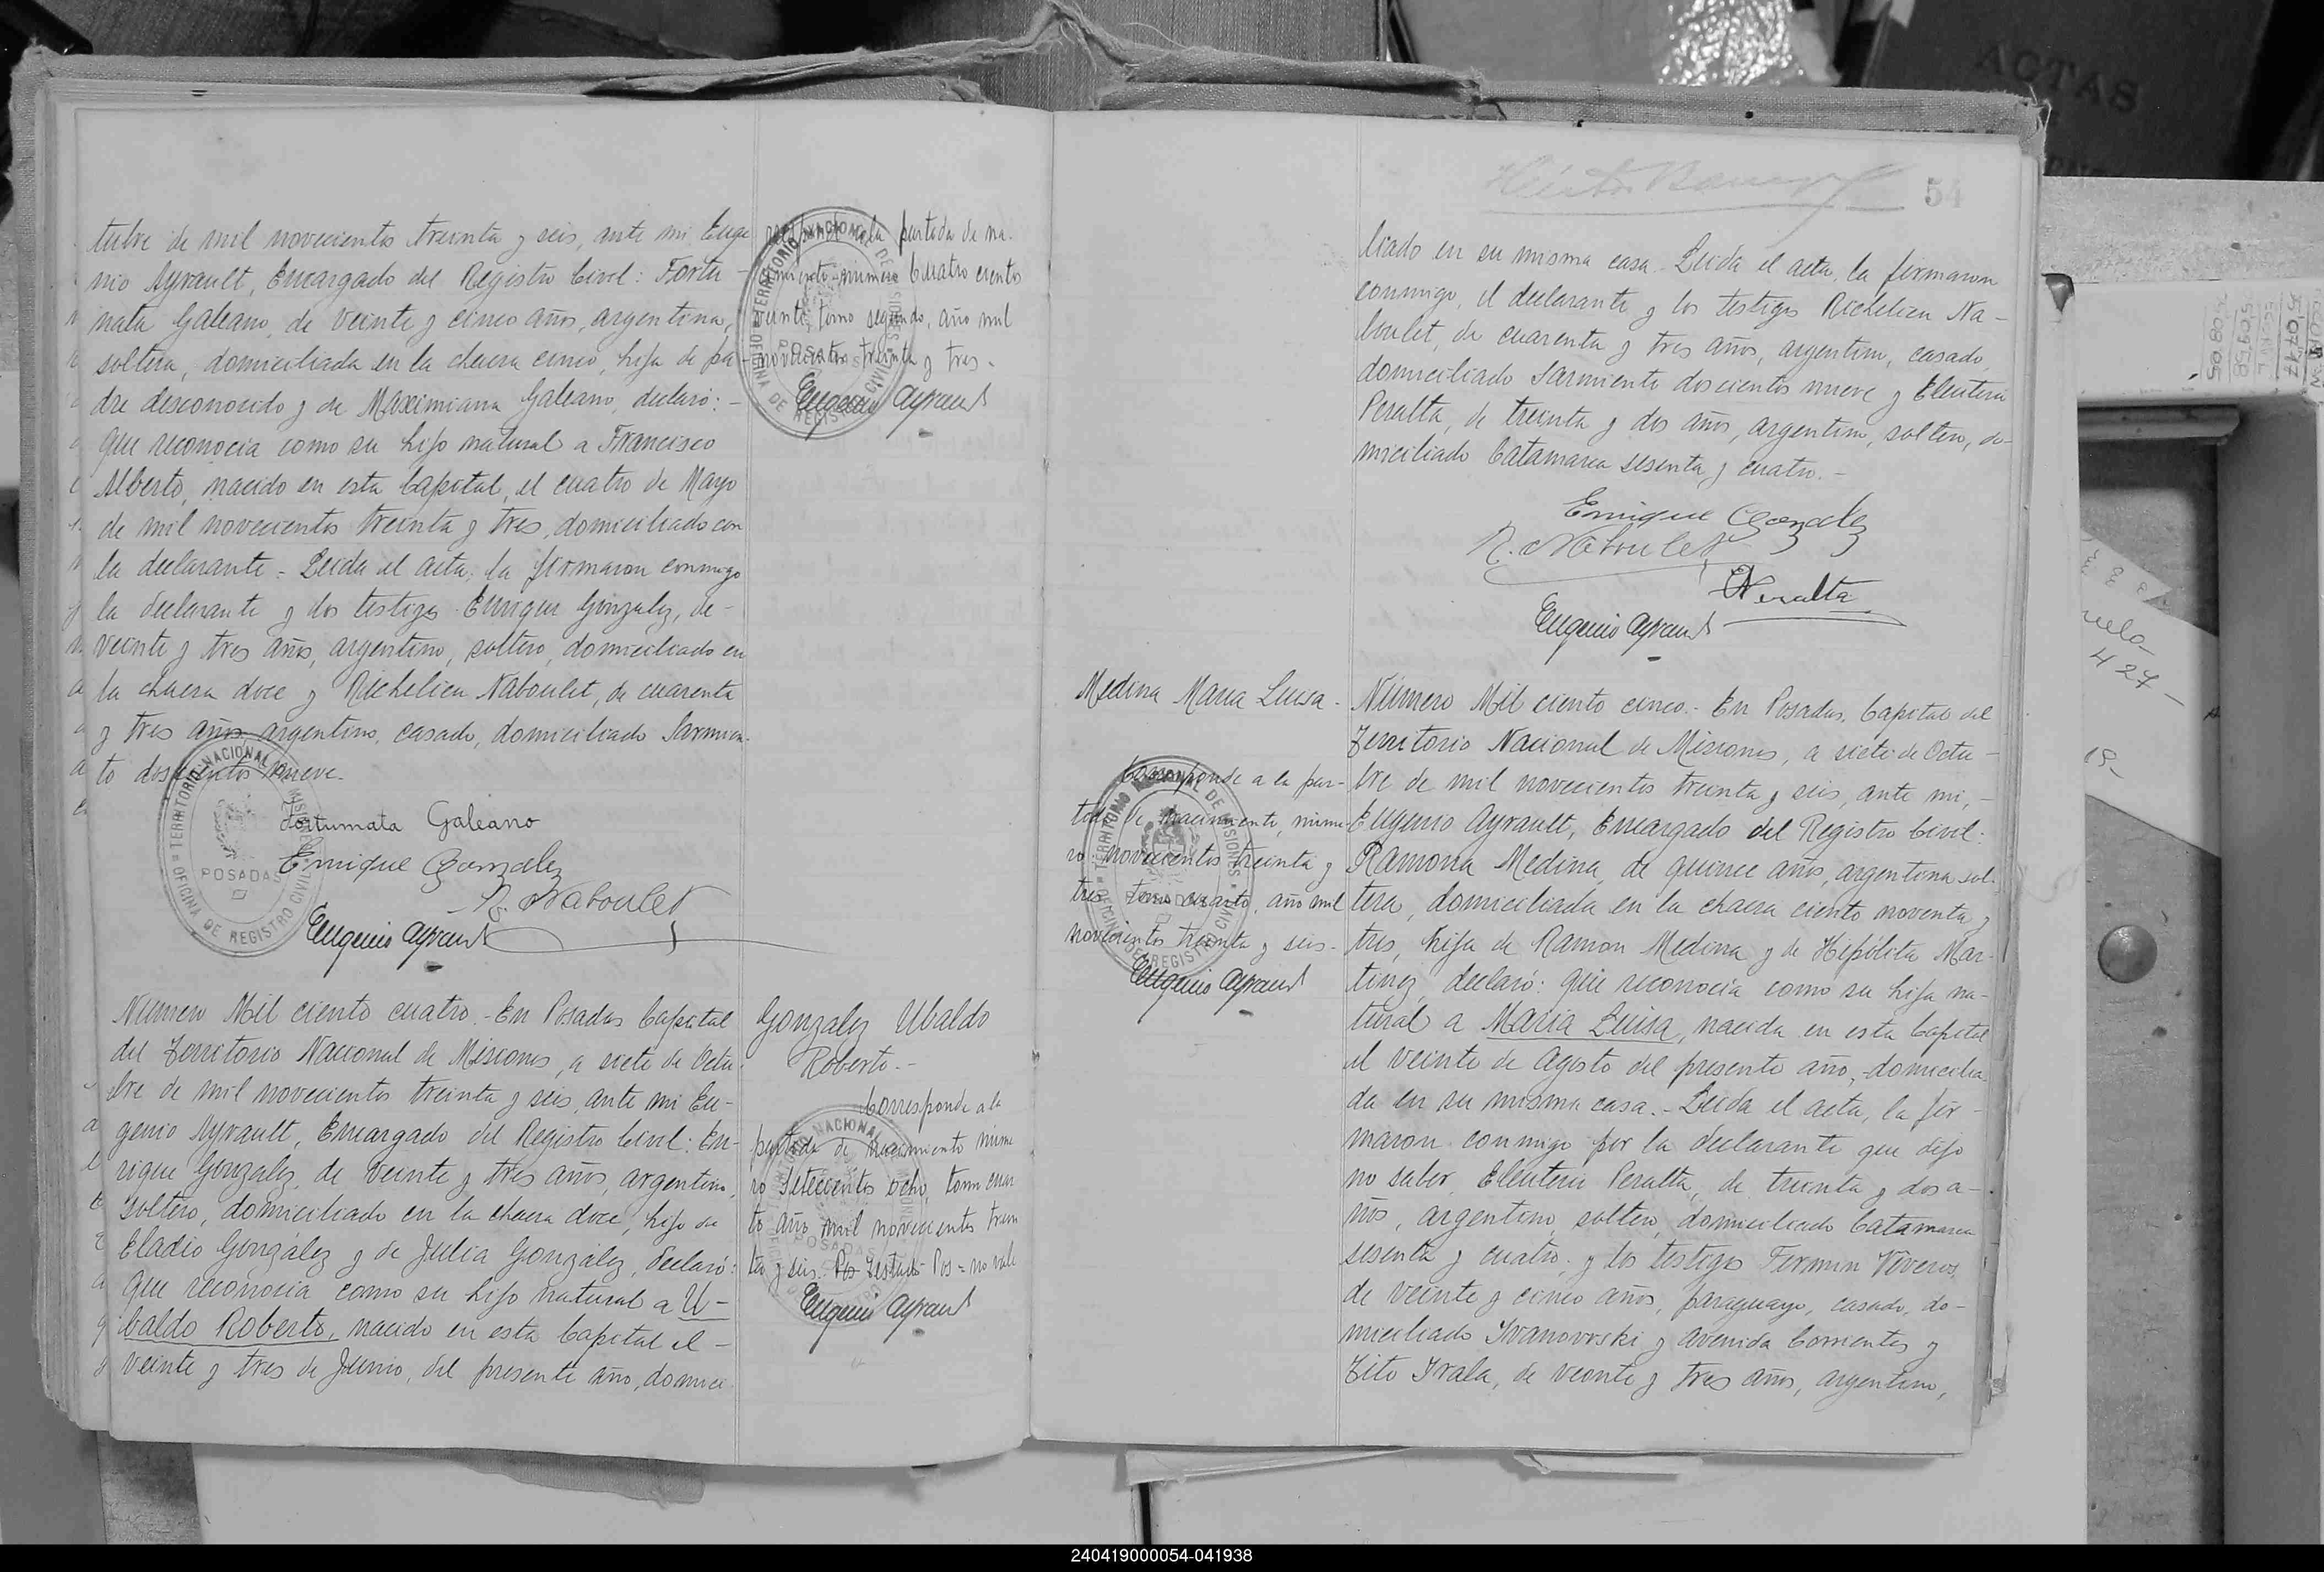 tubre de mil novecientos treinta y seis, ante mi Euge
nio Ayrault, Encargado del Registro Civil: Fortu-
nata Galeano, de veinte y cinco años, argentina,
soltera, domiciliada en la chacra cinco, hija de pa-
dre desconocido y de Maximiana Galeano, declaró:-
que reconocia como su hijo natural a Francisco
Alberto, nacido en esta Capital, el cuatro de Mayo
de mil novecientos treinta y tres, domiciliado con
la declarante.- Leida el acta, la firmaron conmigo
la declarante y dos testigos Enrique Gonzalez, de-
veinte y tres años, argentino, soltero, domiciliado en
la chacra doce y Richelieu Naboulet, de cuarenta
y tres años, argentino, casado, domiciliado Sarmien-
to doscientos nueve.-
Fortunata Galeano
Enrique Gonzalez
R. Naboulet
Eugenio Ayrault
TERRITORIO NACIONAL DE MISIONES
POSADAS
OFICINA DE REGISTRO CIVIL
partida de na-
cimiento número Cuatro cientos
veinte, tomo segundo, año mil
novecientos treinta y tres.
Eugenio Ayrault
TERRITORIO NACIONAL DE MISIONES
POSADAS
OFICINA DE REGISTRO CIVIL
Número Mil ciento cuatro.- En Posadas Capital
del Territorio Nacional de Misiones, a siete de Octu
bre de mil novecientos treinta y seis, ante mi Eu-
genio Ayrault, Encargado del Registro Civil: En-
rique Gonzalez, de veinte y tres años, argentino,
soltero, domiciliado en la chacra doce, hijo de
Eladio González y de Julia González, declaró:
que reconocia como su hijo natural a U-
baldo Roberto, nacido en esta Capital el-
veinte y tres de Junio, del presente año, domici
Gonzalez Ubaldo
Roberto.-
Corresponde a la
partida de nacimiento núme
ro Setecientos ocho, tomo cuar
to año mil novecientos trein
ta y seis. Pos Testado Pos= no vale
Eugenio Ayrault
NACIONAL
POSADAS
54
liado en su misma casa. Leida el acta, la firmaron
conmigo, el declarante y los testigos Richelieu Na-
boulet, de cuarenta y tres años, argentino, casado,
domiciliado Sarmiento doscientos nueve y Eleuterio
Peralta, de treinta y dos años, argentino, soltero, do-
miciliado Catamarca sesenta y cuatro.-
Enrique Gonzalez
R. Naboulet
Peralta
Eugenio Ayrault
Medina Maria Luisa.-
Corresponde a la par-
tida de nacimiento, núme
ro novecientos treinta y
tres tomo cuarto, año mil
novecientos treinta y seis.-
Eugenio Ayrault
TERRITORIO NACIONAL DE MISIONES
POSADAS
OFICINA DE REGISTRO CIVIL
Número Mil ciento cinco.- En Posadas, Capital del
Territorio Nacional de Misiones, a siete de Octu-
bre de mil novecientos treinta y seis, ante mi,-
Eugenio Ayrault, Encargado del Registro Civil:
Ramona Medina, de quince años, argentina sol-
tera, domiciliada en la chacra ciento noventa y
tres, hija de Ramon Medina y de Hipólita Mar-
tinez, declaró: que reconocia como su hija na-
tural a Maria Luisa, nacida en esta Capital
el veinte de Agosto del presente año,-domicilia
da en su misma casa.- Leida el acta, la fir-
maron conmigo por la declarante que dijo
no saber, Eleuterio Peralta, de treinta y dos a-
ños, argentino, soltero, domiciliado Catamarca
sesenta y cuatro, y los testigos Fermin Viveros,
de veinte y cinco años, paraguayo, casado, do-
miciliado Ivanovvski y Avenida Corrientes y
Tito Irala, de veinte y tres años, argentino,
ACTAS
427-
19-
240419000054-041938